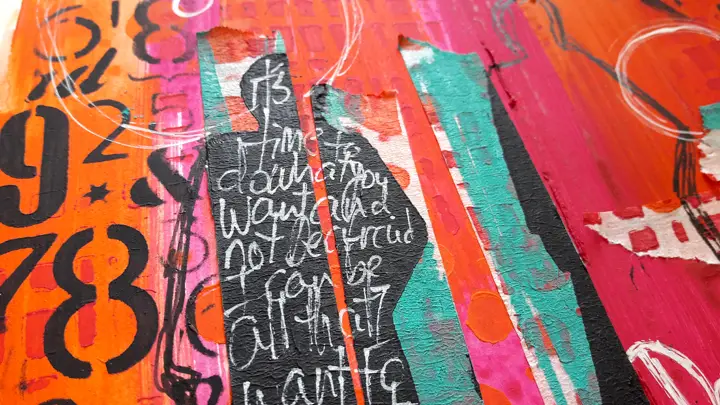 8
92
78
it's
time to
do what you
want and
not be afraid
I can be
all that I
want to